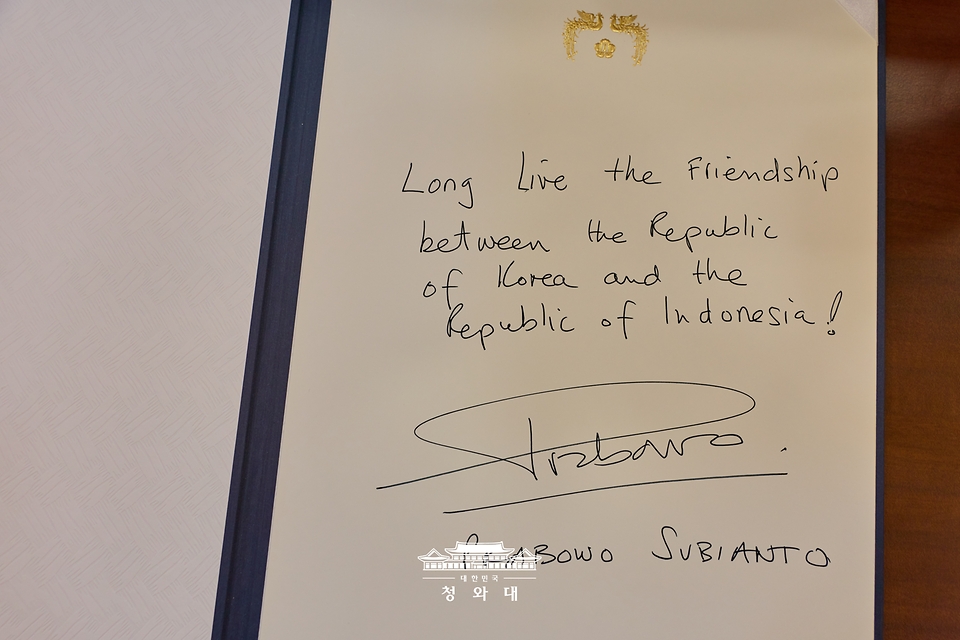 Long Live the Friendship
between the Republic
of Korea and the
Republic of Indonesia!
Prabowo.
PRABOWO SUBIANTO
대한민국
청와대